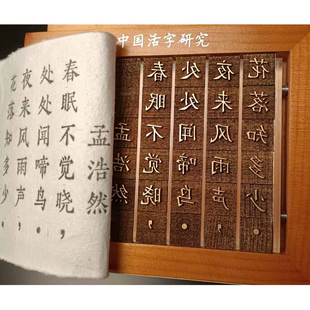 中国活字研究
孟浩然
春眠不觉晓，
处处闻啼鸟。
夜来风雨声，
花落知多少。
孟浩然
春眠不觉晓，
处处闻啼鸟。
夜来风雨声，
花落知多少。